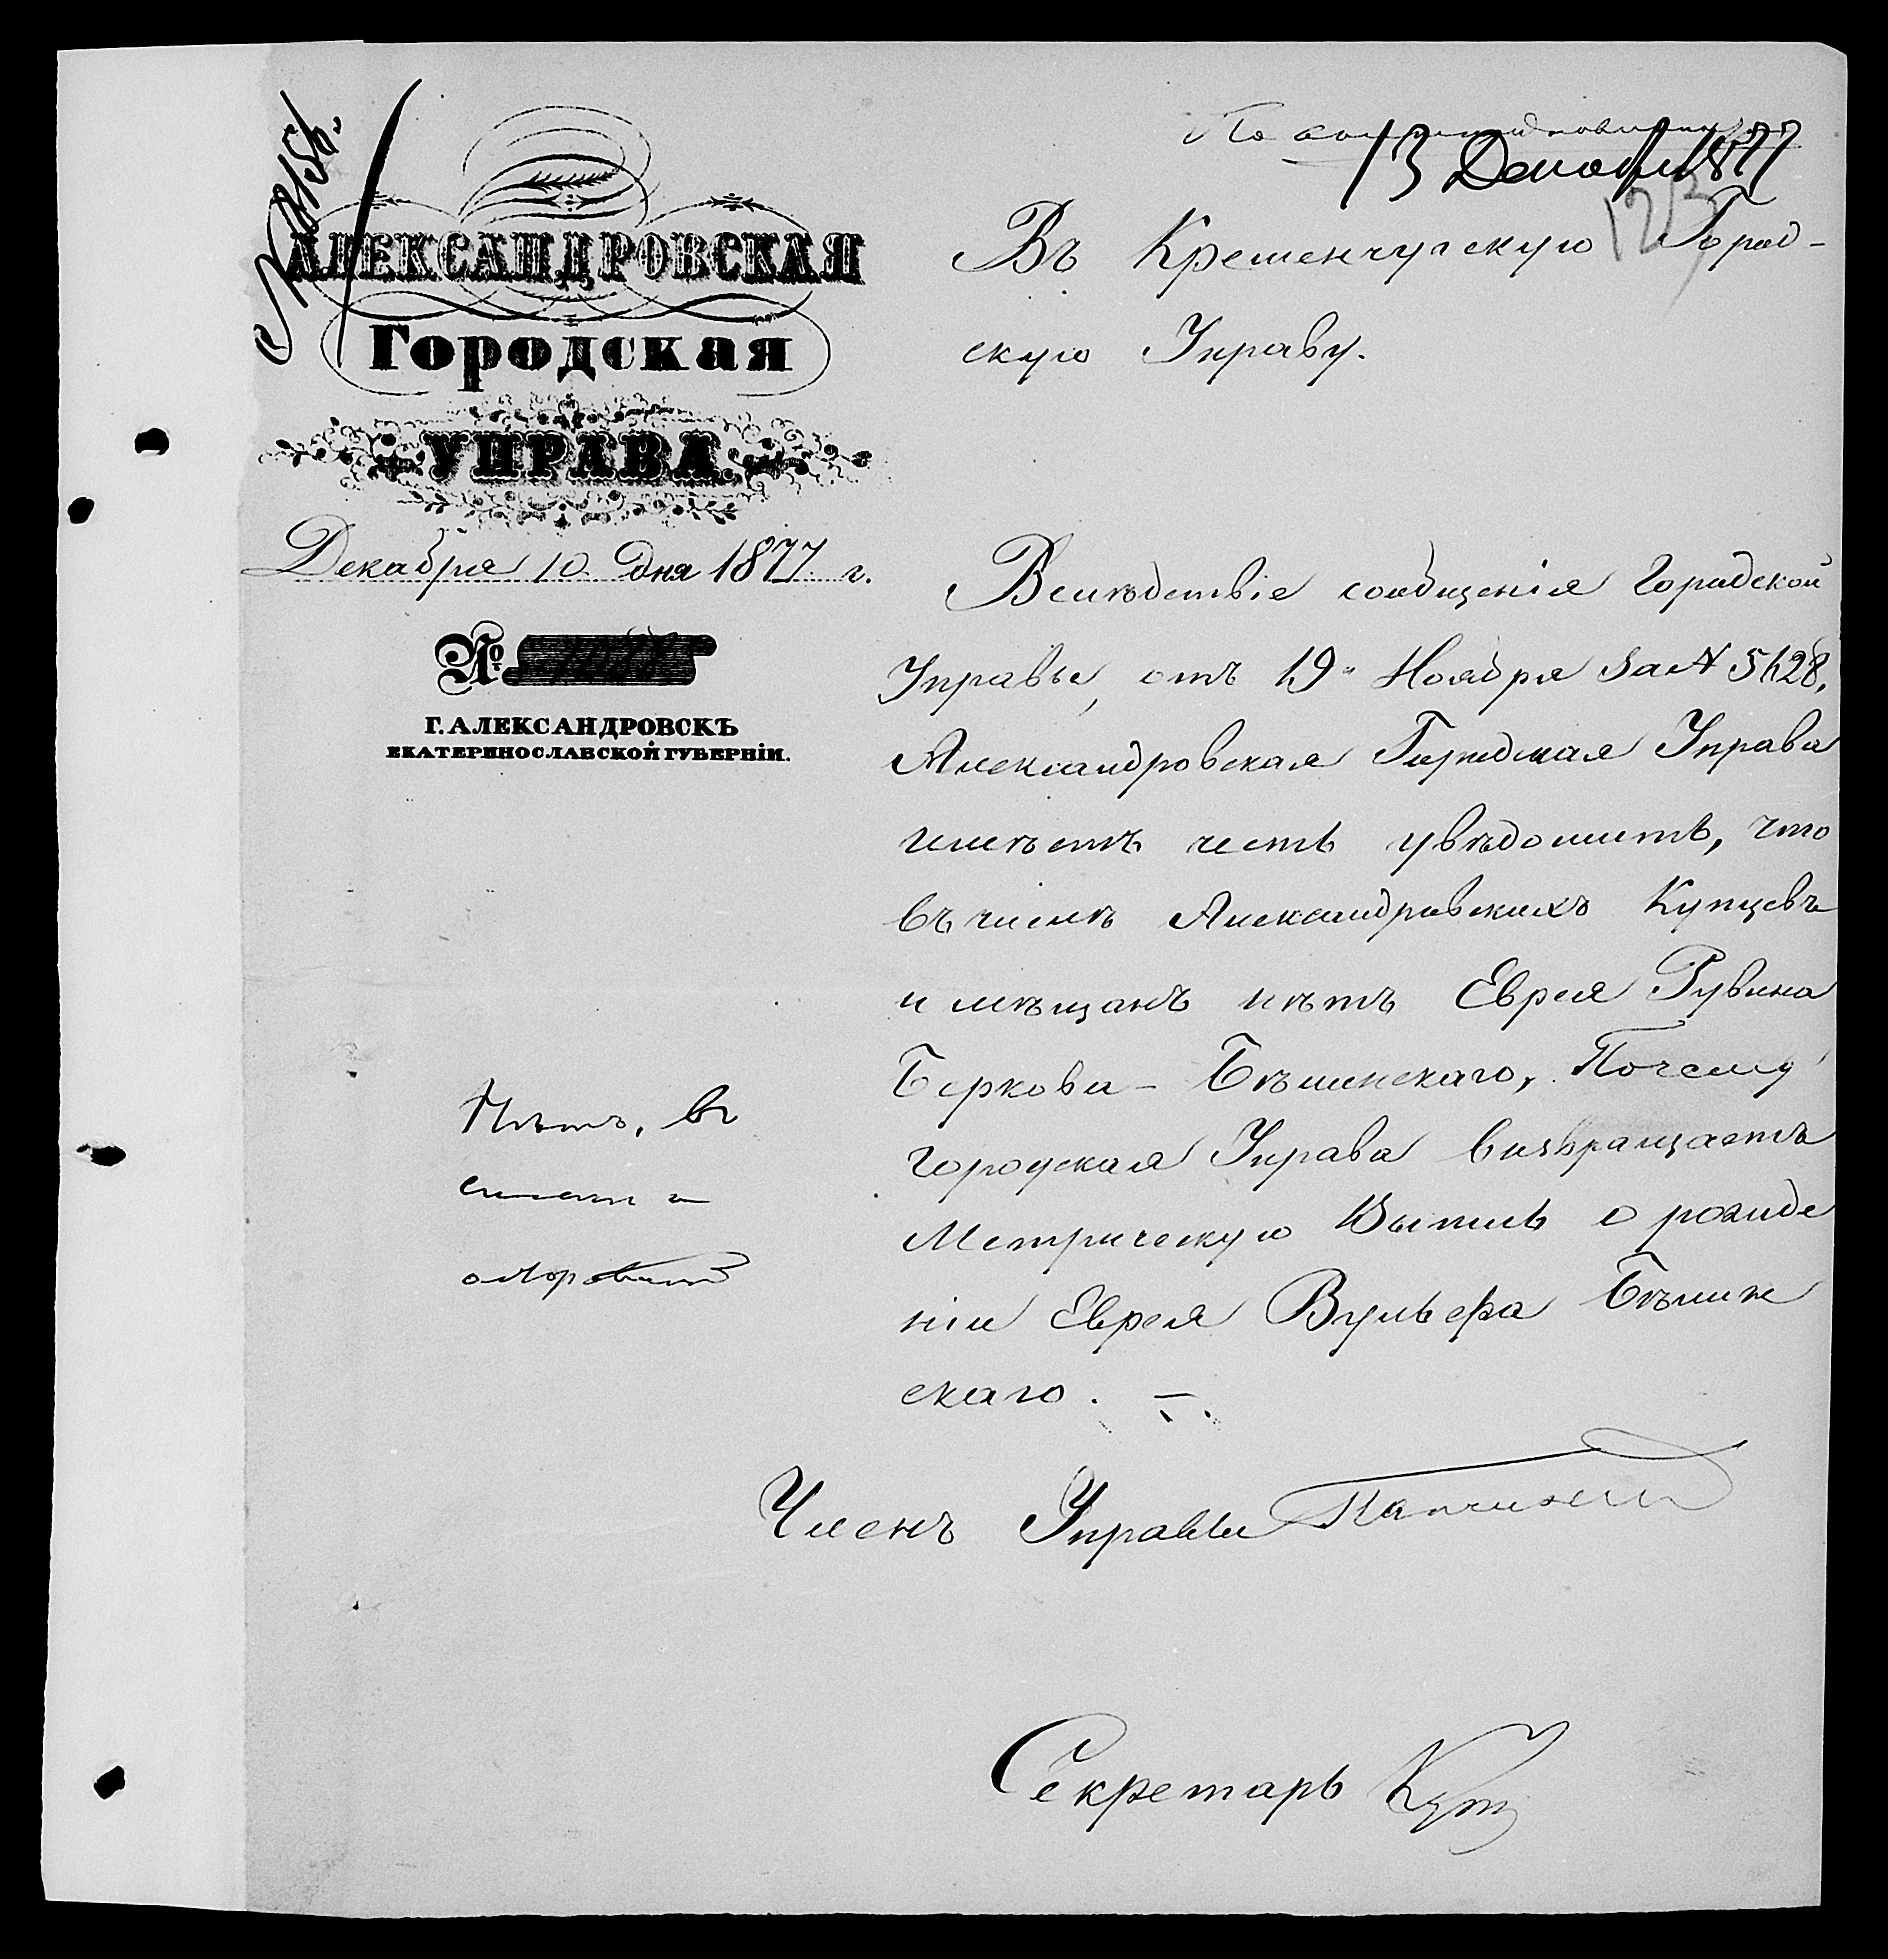 13 Декабря 1877
123
АЛЕКСАНДРОВСКАЯ
Городская
УПРАВА.
Декабря 10 дня 1877 г.
№
Г. АЛЕКСАНДРОВСКЪ
ЕКАТЕРИНОСЛАВСКОЙ ГУБЕРНІИ.
Въ Кременчугскую Город-
скую Управу.
Вслѣдствіе сообщенія Городской
Управы, отъ 19 Ноября за №
Александровская Городская Управа
имѣетъ честь увѣдомить, что
въ числѣ Александровскихъ Купцевъ
и мѣщанъ нѣтъ Еврея Рувина
Беркова- Почему
городская Управа возвращаетъ
Метрическую Выпись о рожде
ніи Еврея Вульфа
скаго. —
Членъ Управы
Секретарь